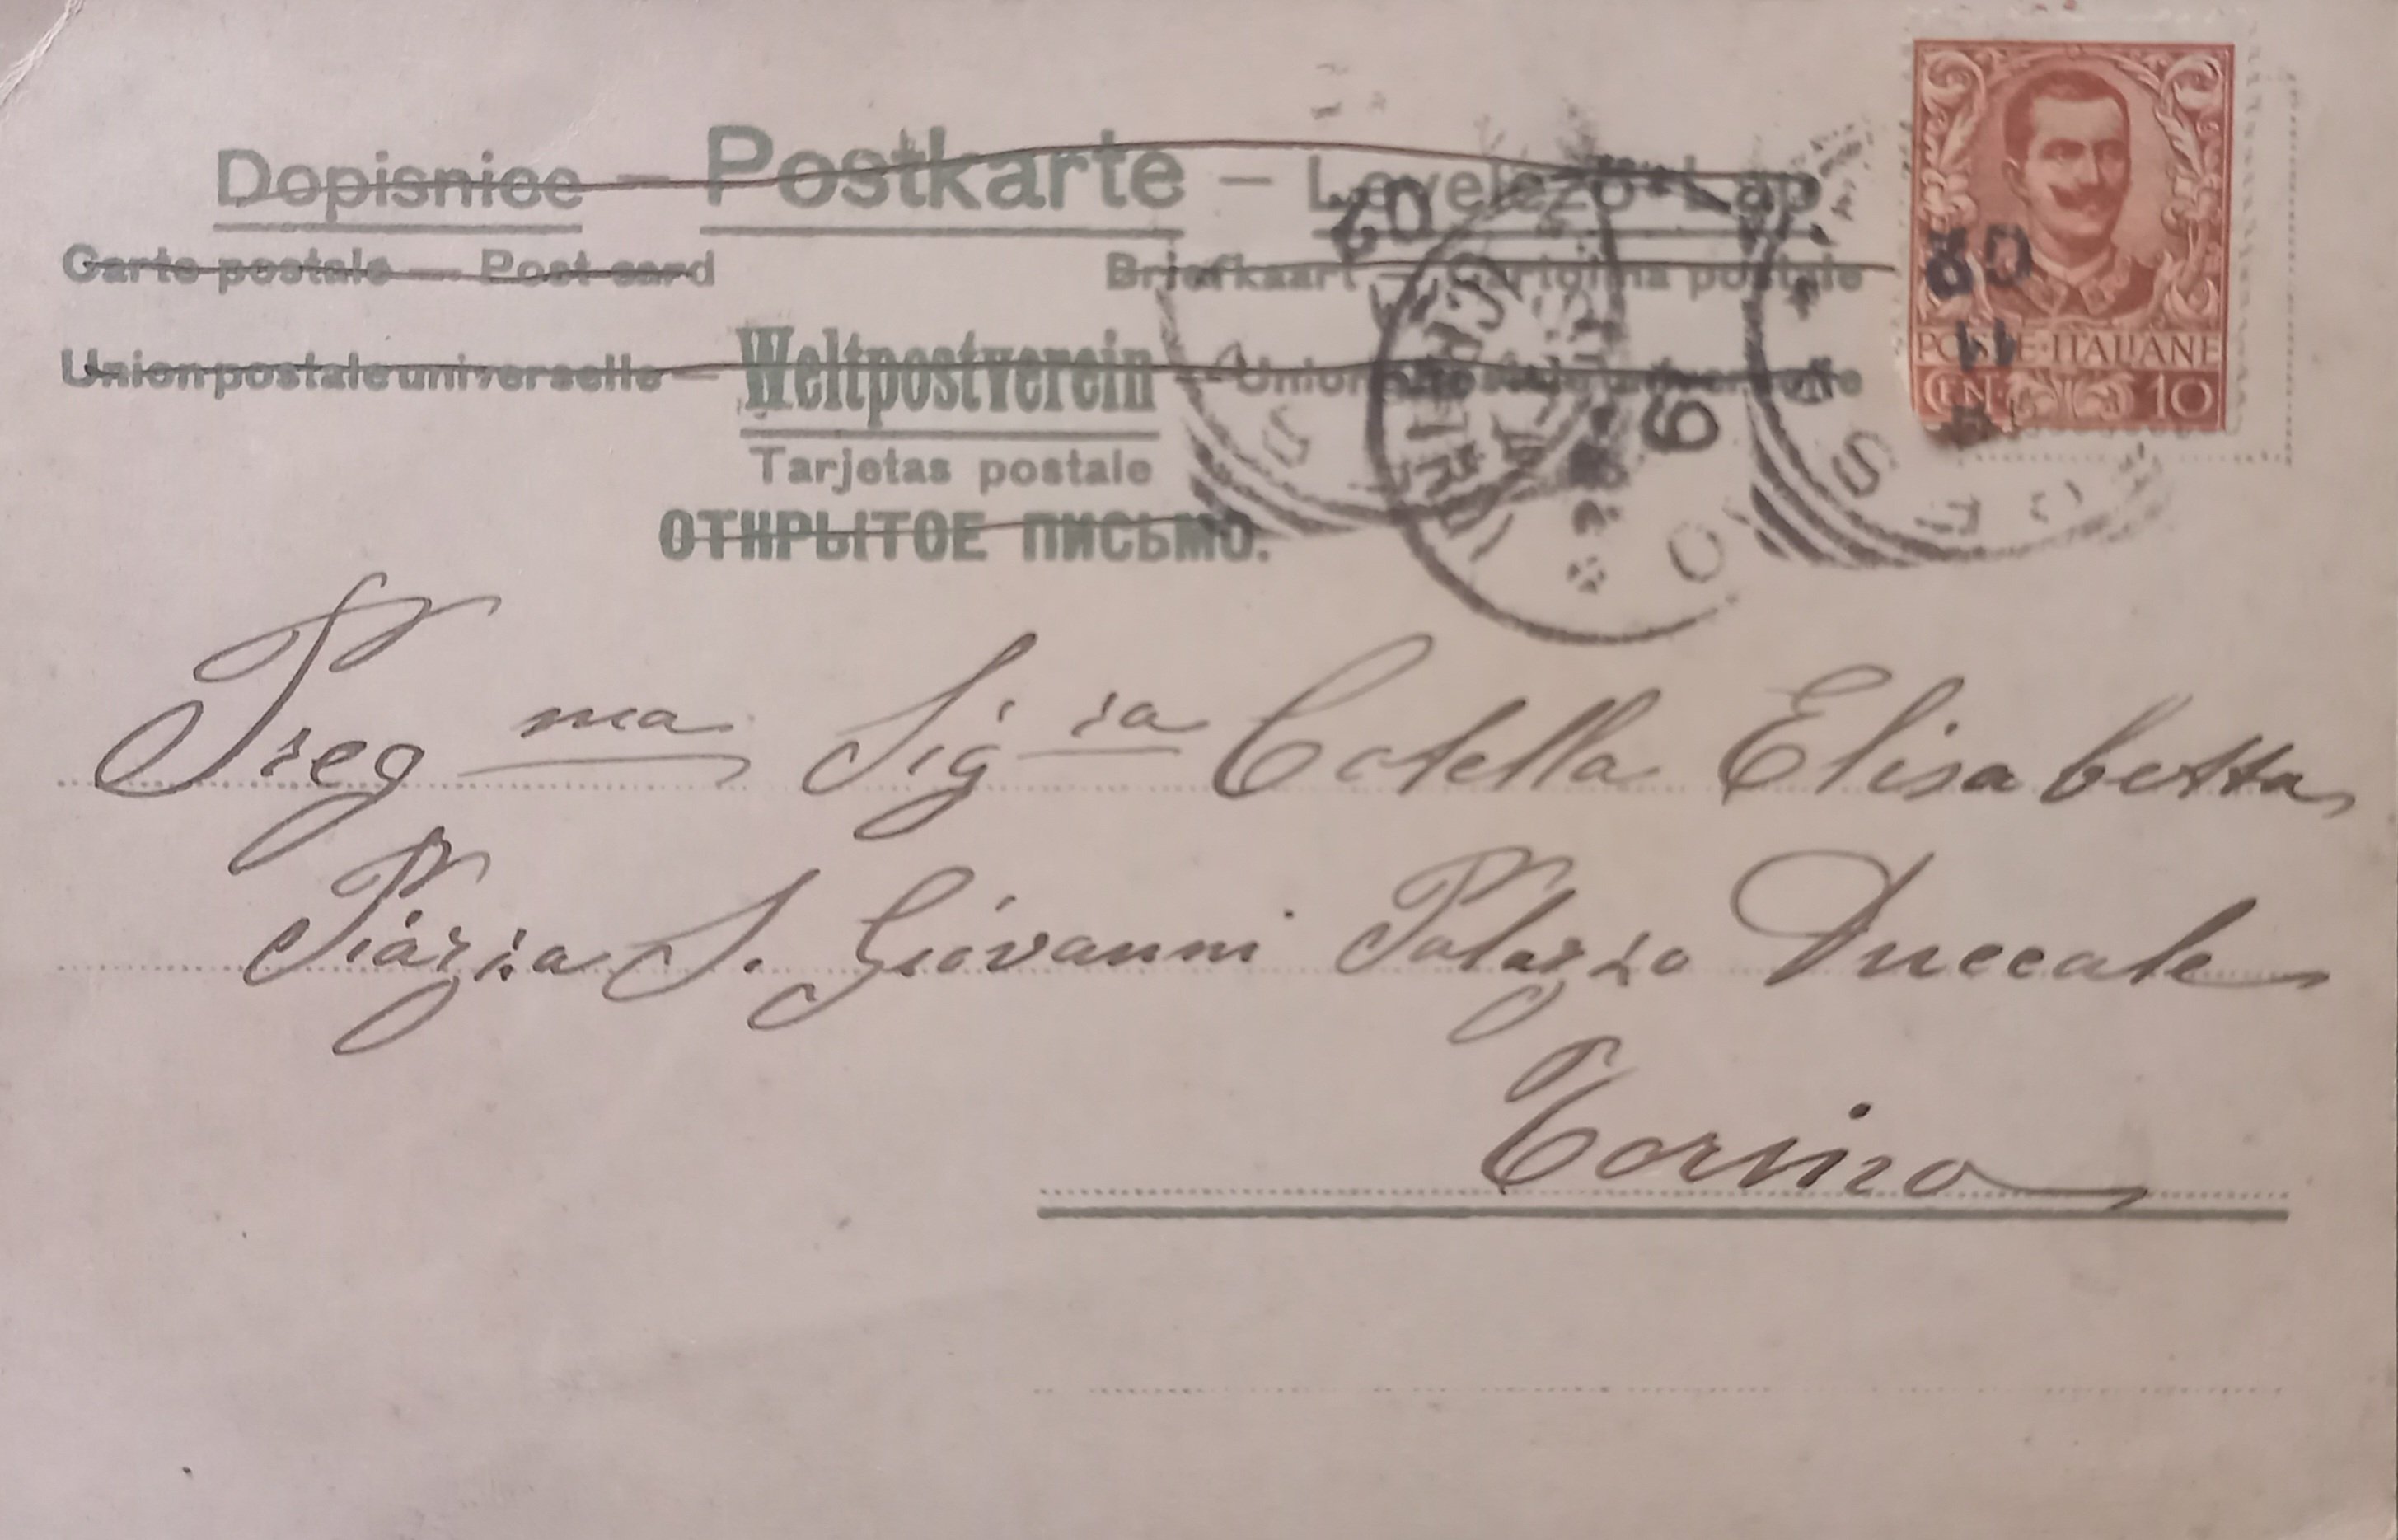 Dopisnice — Postkarte — Levelező-Lap
Carte postale — Post card Briefkaart — Cartolina postale
Union postale universelle — Weltpostverein — Union postale universelle
Tarjetas postale
ОТКРЫТОЕ ПИСЬМО.
POSTE·ITALIANE
CEN· 10
02
02
11
Preg ma Sig ia Cotella Elisabetta
Piazza S. Giovanni Palazzo Duccale
Torino